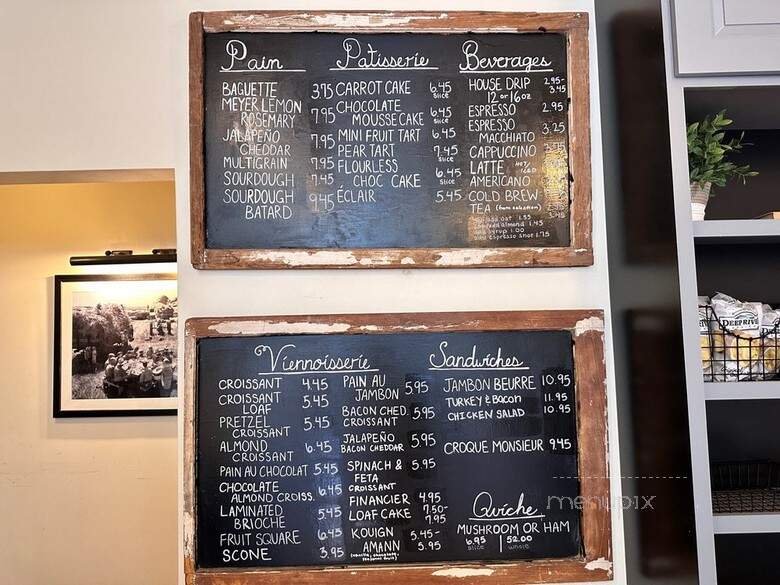 Pain
BAGUETTE 3.75
MEYER LEMON
ROSEMARY 7.95
JALAPEÑO
CHEDDAR 7.95
MULTIGRAIN 7.95
SOURDOUGH 7.45
SOURDOUGH
BATARD 9.45
Patisserie
CARROT CAKE 6.45
slice
CHOCOLATE
MOUSSE CAKE 6.45
slice
MINI FRUIT TART 6.45
PEAR TART 7.45
slice
FLOURLESS
CHOC CAKE 6.45
slice
ÉCLAIR 5.45
Beverages
HOUSE DRIP 2.95-
12 or 16oz 3.45
ESPRESSO 2.95
ESPRESSO
MACCHIATO 3.25
CAPPUCCINO
LATTE HOT/ICED
AMERICANO
COLD BREW
TEA (from selection)
Viennoisserie
CROISSANT 4.45
CROISSANT
LOAF 5.45
PRETZEL
CROISSANT 5.45
ALMOND
CROISSANT 6.45
PAIN AU CHOCOLAT 5.45
CHOCOLATE
ALMOND CROISS. 6.45
LAMINATED
BRIOCHE 5.45
FRUIT SQUARE 6.45
SCONE 3.95
PAIN AU
JAMBON 5.95
BACON CHED.
CROISSANT 5.95
JALAPEÑO
BACON CHEDDAR 5.95
SPINACH & 5.95
FETA
CROISSANT
FINANCIER 4.95
LOAF CAKE 7.50-
7.95
KOUIGN 5.45-
AMANN 5.95
Sandwiches
JAMBON BEURRE 10.95
TURKEY & BACON 11.95
CHICKEN SALAD 10.95
CROQUE MONSIEUR 9.45
Quiche
MUSHROOM OR HAM
6.95 | 52.00
slice whole
DEEP RIVER
menupix